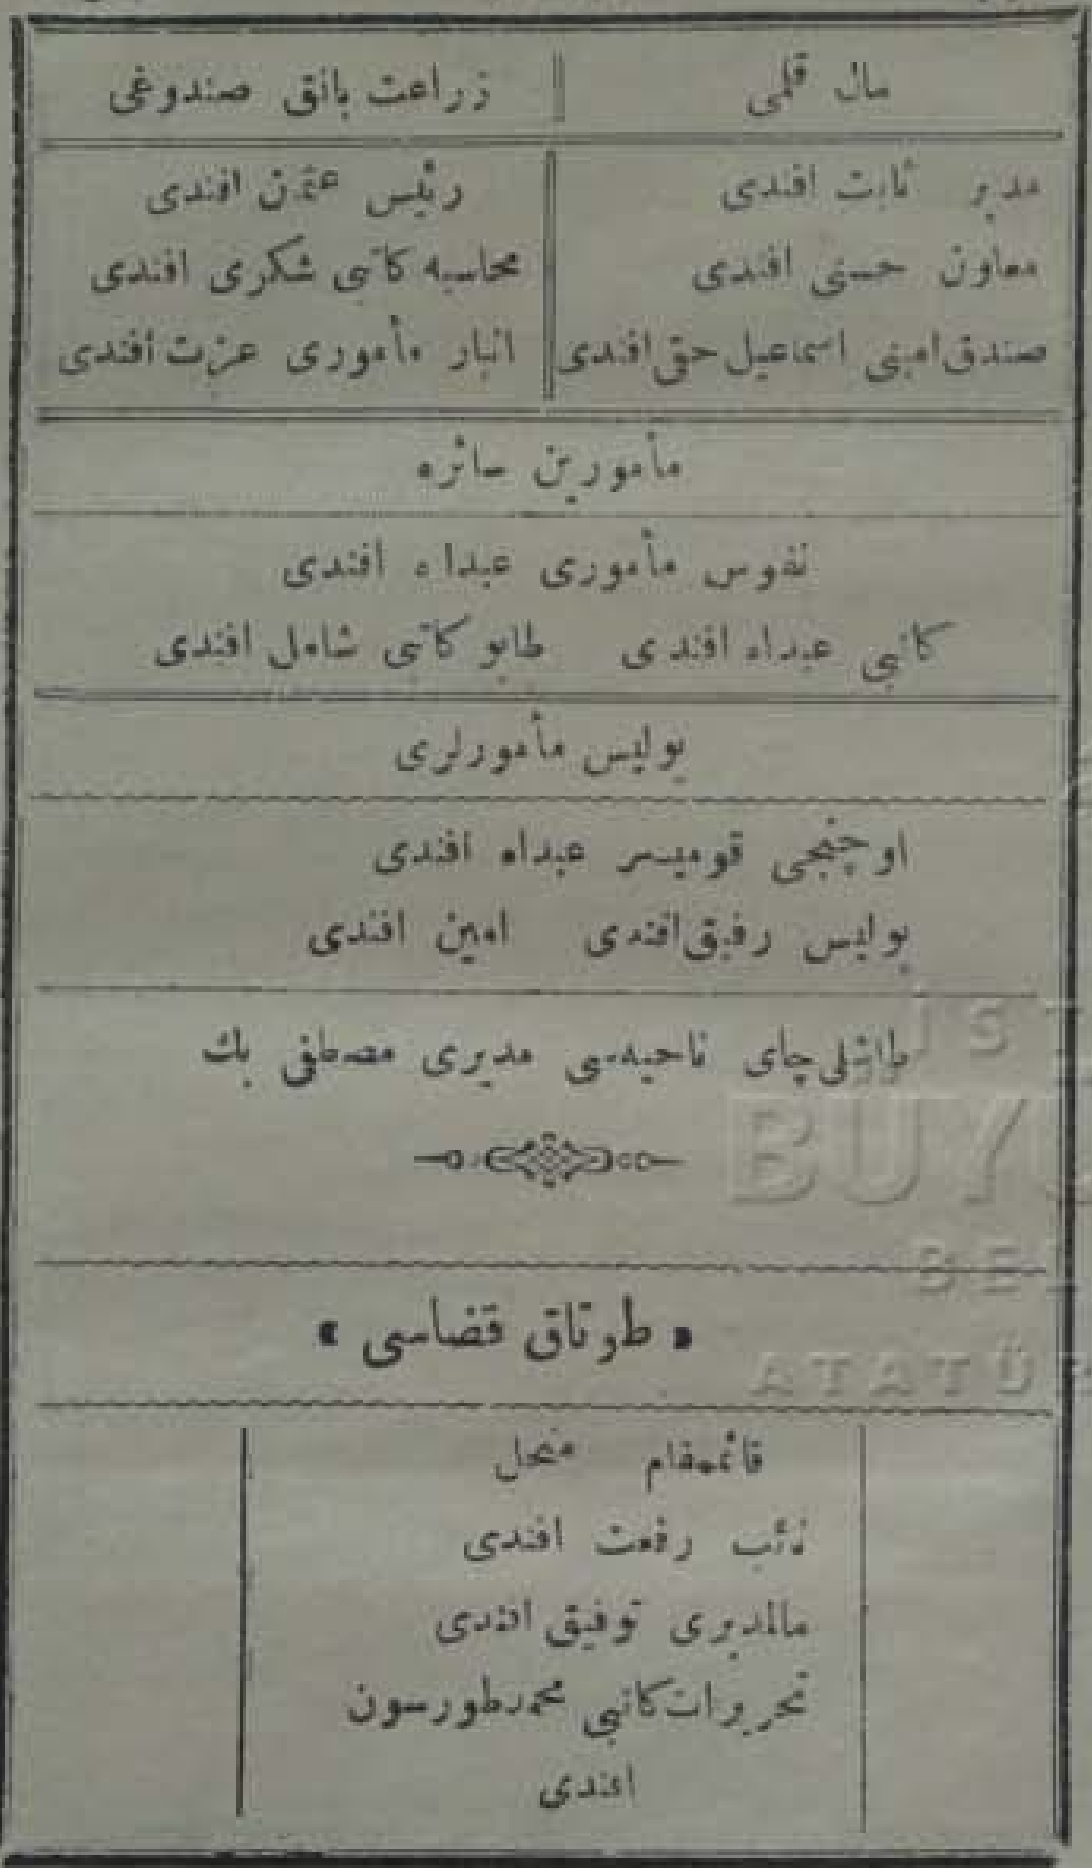 مال قلمی
زراعت بانق صندوغی
مدیر ثابت افندی
معاون حسنی افندی
صندق امینی اسماعیل حقی افندی
رئیس عثمان افندی
محاسبه کاتبی شکری افندی
انبار مأموری عزت افندی
مأمورین سائره
نفوس مأموری عبدالله افندی
کاتبی عبدالله افندی طاپو کاتبی شامل افندی
پولیس مأمورلری
اوچنجی قومیسر عبدالله افندی
پولیس رفیق افندی امین افندی
طاشلی چای ناحیه سی مدیری مصطفی بك
« طوتاق قضاسی »
قائمقام منحل
نائب رفعت افندی
مالمدیری توفیق افندی
تحریرات کاتبی محمد طورسون
افندی
BÜY
ATATÜR